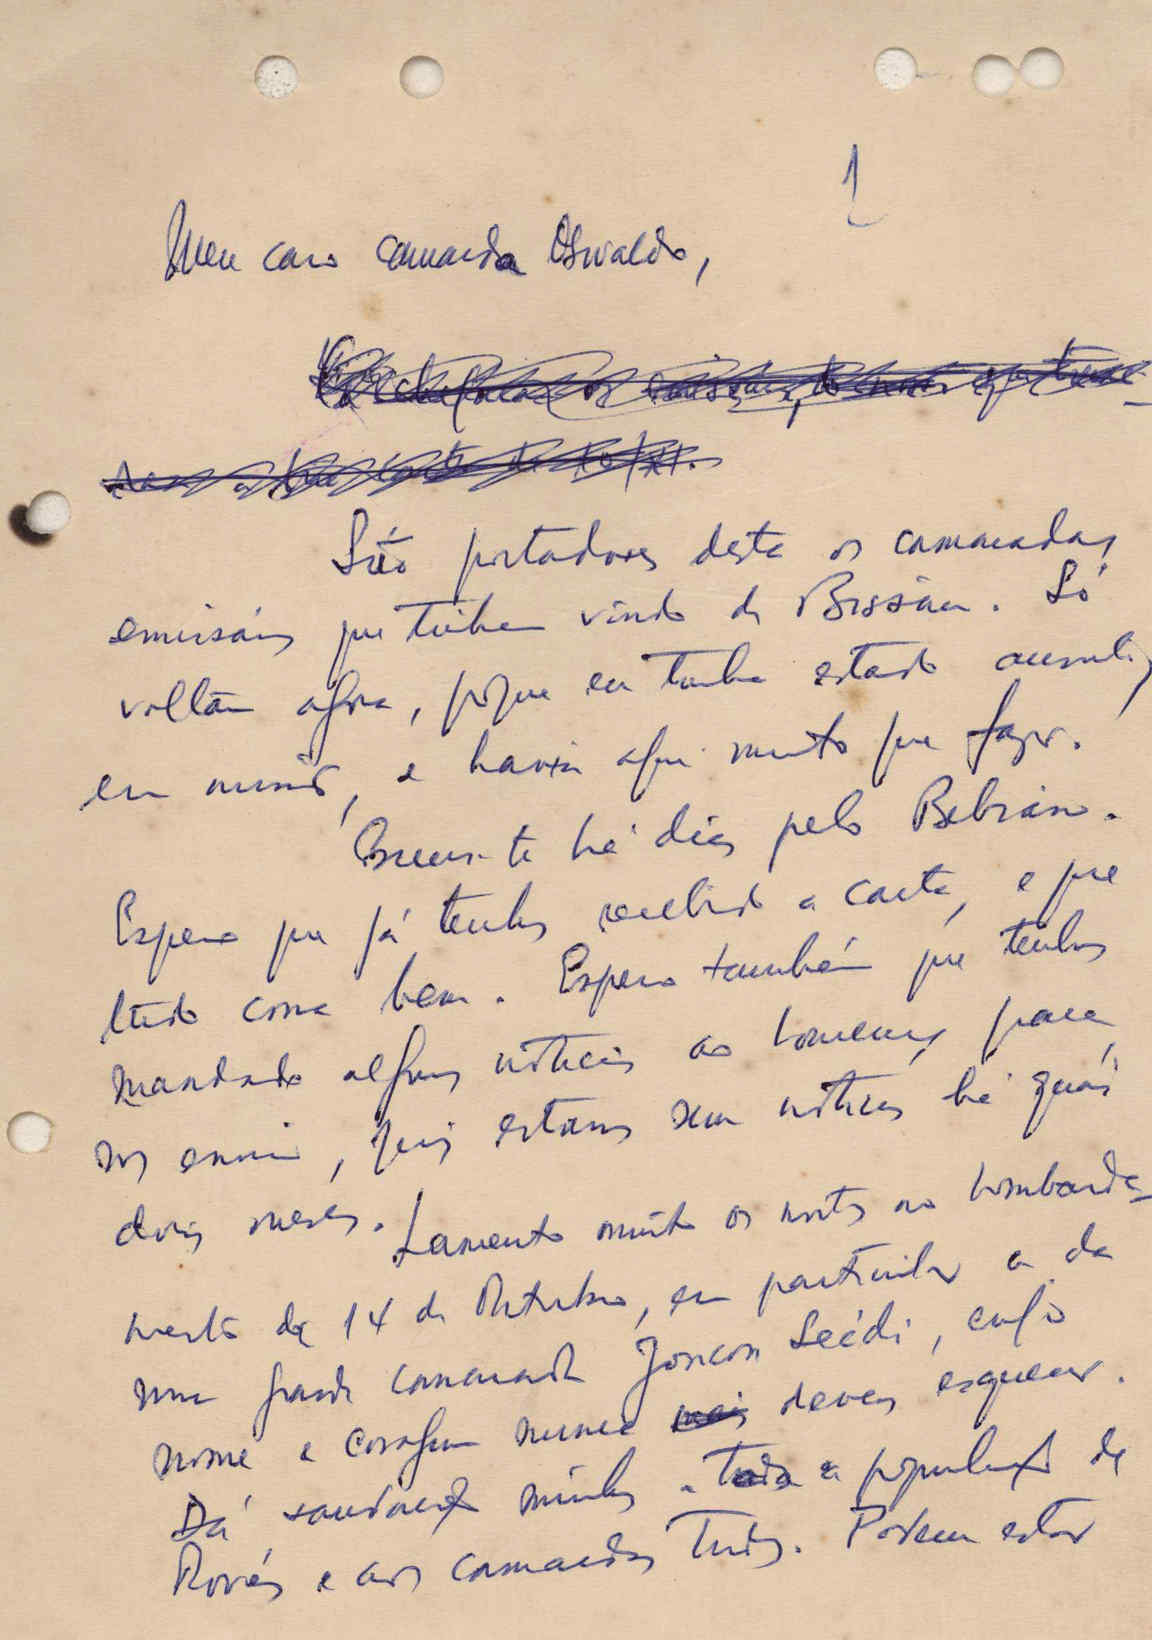 1
Meu caro camarada Osvaldo,
São portadores desta os camaradas
emissários que tinham vindo de Bissau. Só
voltam agora, porque eu tinha estado ausente,
em missão, e havia aqui muito que fazer.
Escrevi-te há dias pelo Bebiano.
Espero que já tenhas recebido a carta, e que
tudo corra bem. Espero também que tenhas
mandado algumas notícias ao Lourenço para
nos enviar, pois estamos sem notícias há quasi
dois meses. Lamento muito os mortos no bombardea-
mento de 14 de Outubro, em particular a da
nossa grande camarada Joncon Seidi, cujo
nome e coragem nunca deves esquecer.
Dá saudações minhas a toda a população de
e aos camaradas todos. Podem estar